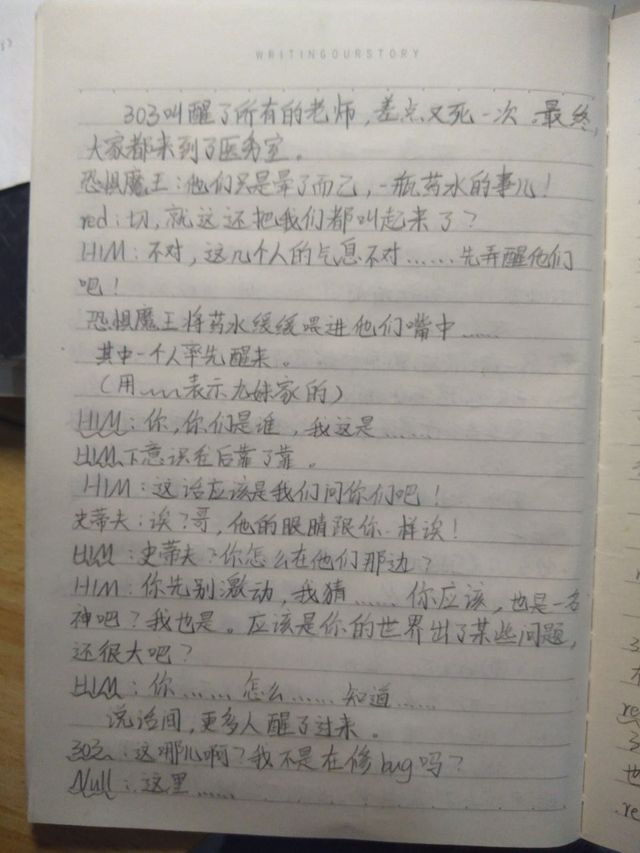 WRITINGOURSTORY
303叫醒了所有的老师,差点又死一次。最终,
大家都来到了医务室。
恐惧魔王:他们只是晕了而已,一瓶药水的事儿!
red:切,就这还把我们都叫起来了?
HIM:不对,这几个人的气息不对……先弄醒他们
吧!
恐惧魔王将药水缓缓喂进他们嘴中……
其中一个人率先醒来。
(用﹏﹏表示九妹家的)
HIM:你,你们是谁,我这是……
HIM下意识往后靠了靠。
HIM:这话应该是我们问你们吧!
史蒂夫:诶?哥,他的眼睛跟你一样诶!
HIM:史蒂夫?你怎么在他们那边?
HIM:你先别激动,我猜……你应该,也是一名
神吧?我也是。应该是你的世界出了某些问题,
还很大吧?
HIM:你……怎么……知道……
说话间,更多人醒了过来。
303:这哪儿啊?我不是在修bug吗?
Null:这里……
re
3
也
re